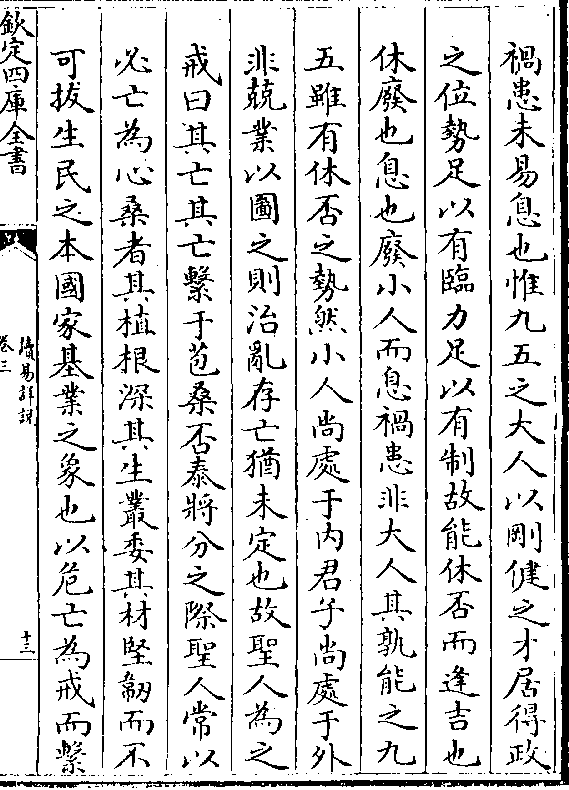 禍患未易息也惟九五之大人以剛健之才居得政
之位勢足以有臨力足以有制故能休否而逢吉也
休廢也息也廢小人而息禍患非大人其孰能之九
五雖有休否之勢然小人尚處于内君子尚處于外
非兢業以圖之則治亂存亡猶未定也故聖人為之
戒曰其亡其亡繫于苞桑否泰將分之際聖人常以
必亡為心桑者其植根深其生叢委其材堅韌而不
可拔生民之本國家基業之象也以危亡為戒而繫
欽定四庫全書
讀易詳說
卷三
十三